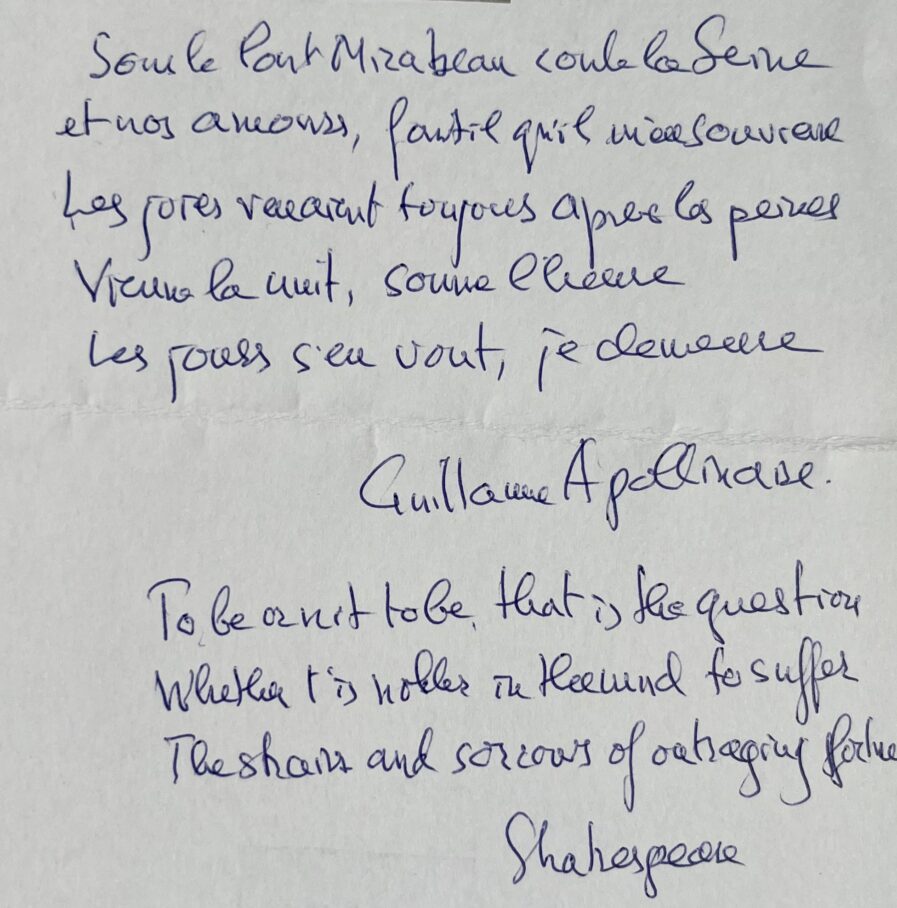 Sous le Pont Mirabeau coule la Seine
et nos amours, faut il qu'il m'en souvienne
Les joies venaient toujours apres les peines
Vienne la nuit, sonne l'heure
Les jours s'en vont, je demeure
Guillaume Apollinaire.
To be or not to be, that is the question
Whether t is nobler in the mind to suffer
The and sorrows of outraging fortune
Shakespeare